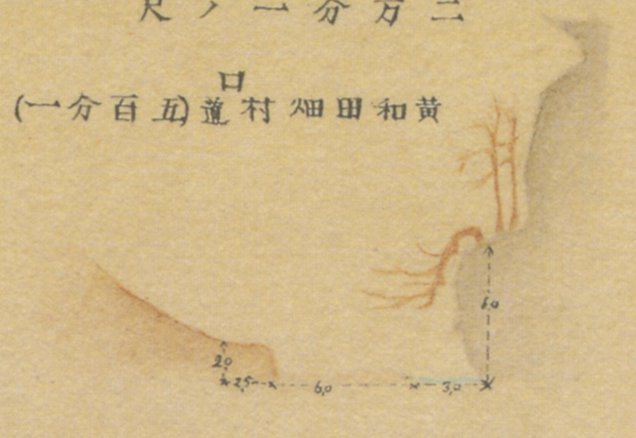 二万分一ノ尺
口
黄和田畑村道(五百分一)
6,0
2,0
2,5
6,0
3,0